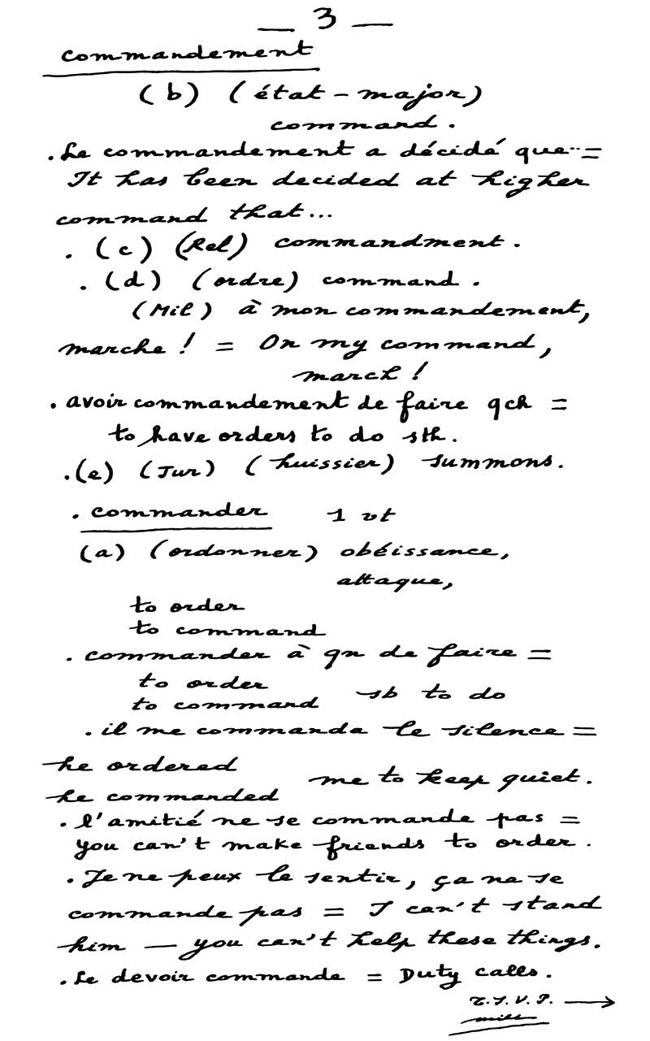 — 3 —
commandement
(b) (état-major)
command.
. Le commandement a décidé que... =
It has been decided at higher
command that...
. (c) (Rel) commandment.
. (d) (ordre) command.
(Mil) à mon commandement,
marche ! = On my command,
march !
. avoir commandement de faire qch =
to have orders to do sth.
. (e) (Jur) (huissier) summons.
. commander 1 vt
(a) (ordonner) obéissance,
attaque,
to order
to command
. commander à qn de faire =
to order
to command sb to do
. il me commanda le silence =
he ordered
he commanded me to keep quiet.
. l'amitié ne se commande pas =
you can't make friends to order.
. Je ne peux le sentir, ça ne se
commande pas = I can't stand
him — you can't help these things.
. Le devoir commande = Duty calls.
T.S.V.P. →